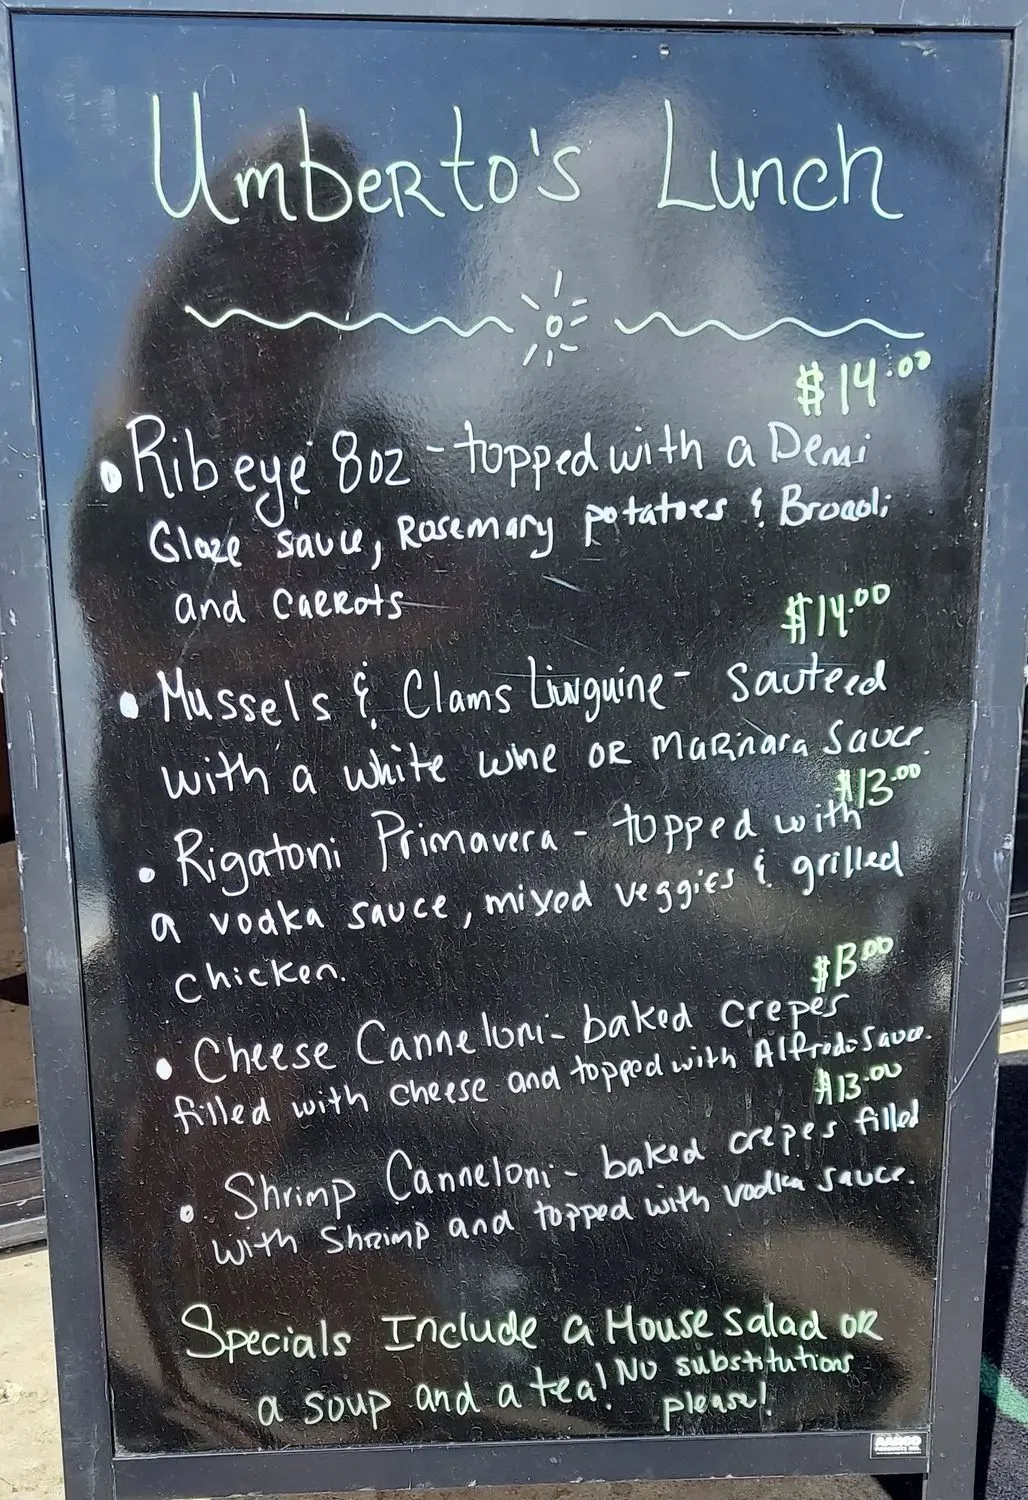 Umberto's Lunch
$14.00
• Ribeye 8oz - topped with a Demi
Glaze sauce, Rosemary potatoes & Brocoli
and Carrots
$14.00
• Mussels & Clams Linguine - Sauteed
with a white wine or Marinara Sauce.
$13.00
• Rigatoni Primavera - topped with
a vodka sauce, mixed veggies & grilled
chicken.
$13.00
• Cheese Canneloni - baked crepes
filled with cheese and topped with Alfredo Sauce.
$13.00
• Shrimp Canneloni - baked crepes filled
with Shrimp and topped with vodka sauce.
Specials Include a House salad or
a soup and a tea! No substitutions
please!